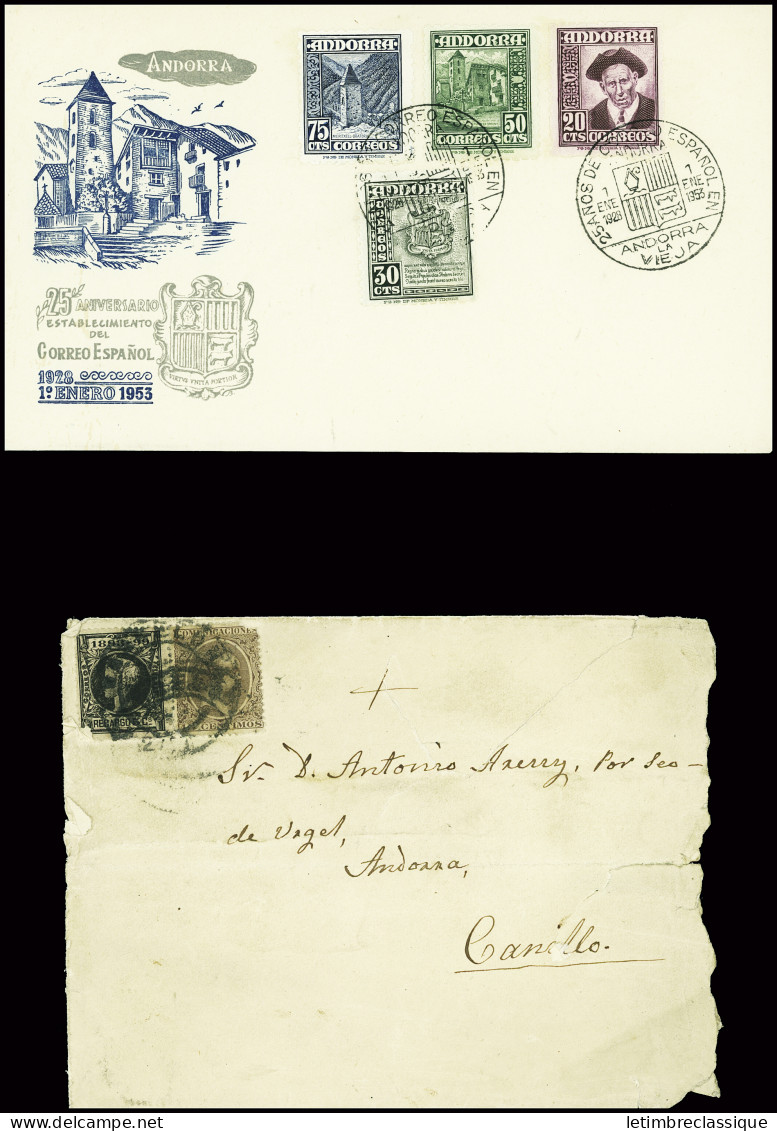 ANDORRA
25º ANIVERSARIO
ESTABLECIMIENTO
DEL
CORREO ESPAÑOL
VIRTVS VNITA FORTIOR
1928
1º ENERO 1953
ANDORRA
75
CTS
CORREOS
ANDORRA
50
CTS
CORREOS
ANDORRA
20
CTS
CORREOS
ANDORRA
CORREOS
30
CTS
CORREO ESPAÑOL EN
25 AÑOS DE CORREO ESPAÑOL EN
1 ENE 1928
1 ENE 1953
ANDORRA
LA
VIEJA
RECARGO
CENTIMOS
Sr. D. Antonio Areny, Por Seo-
de Urgel,
Andorra,
Canillo.
letimbreclassique